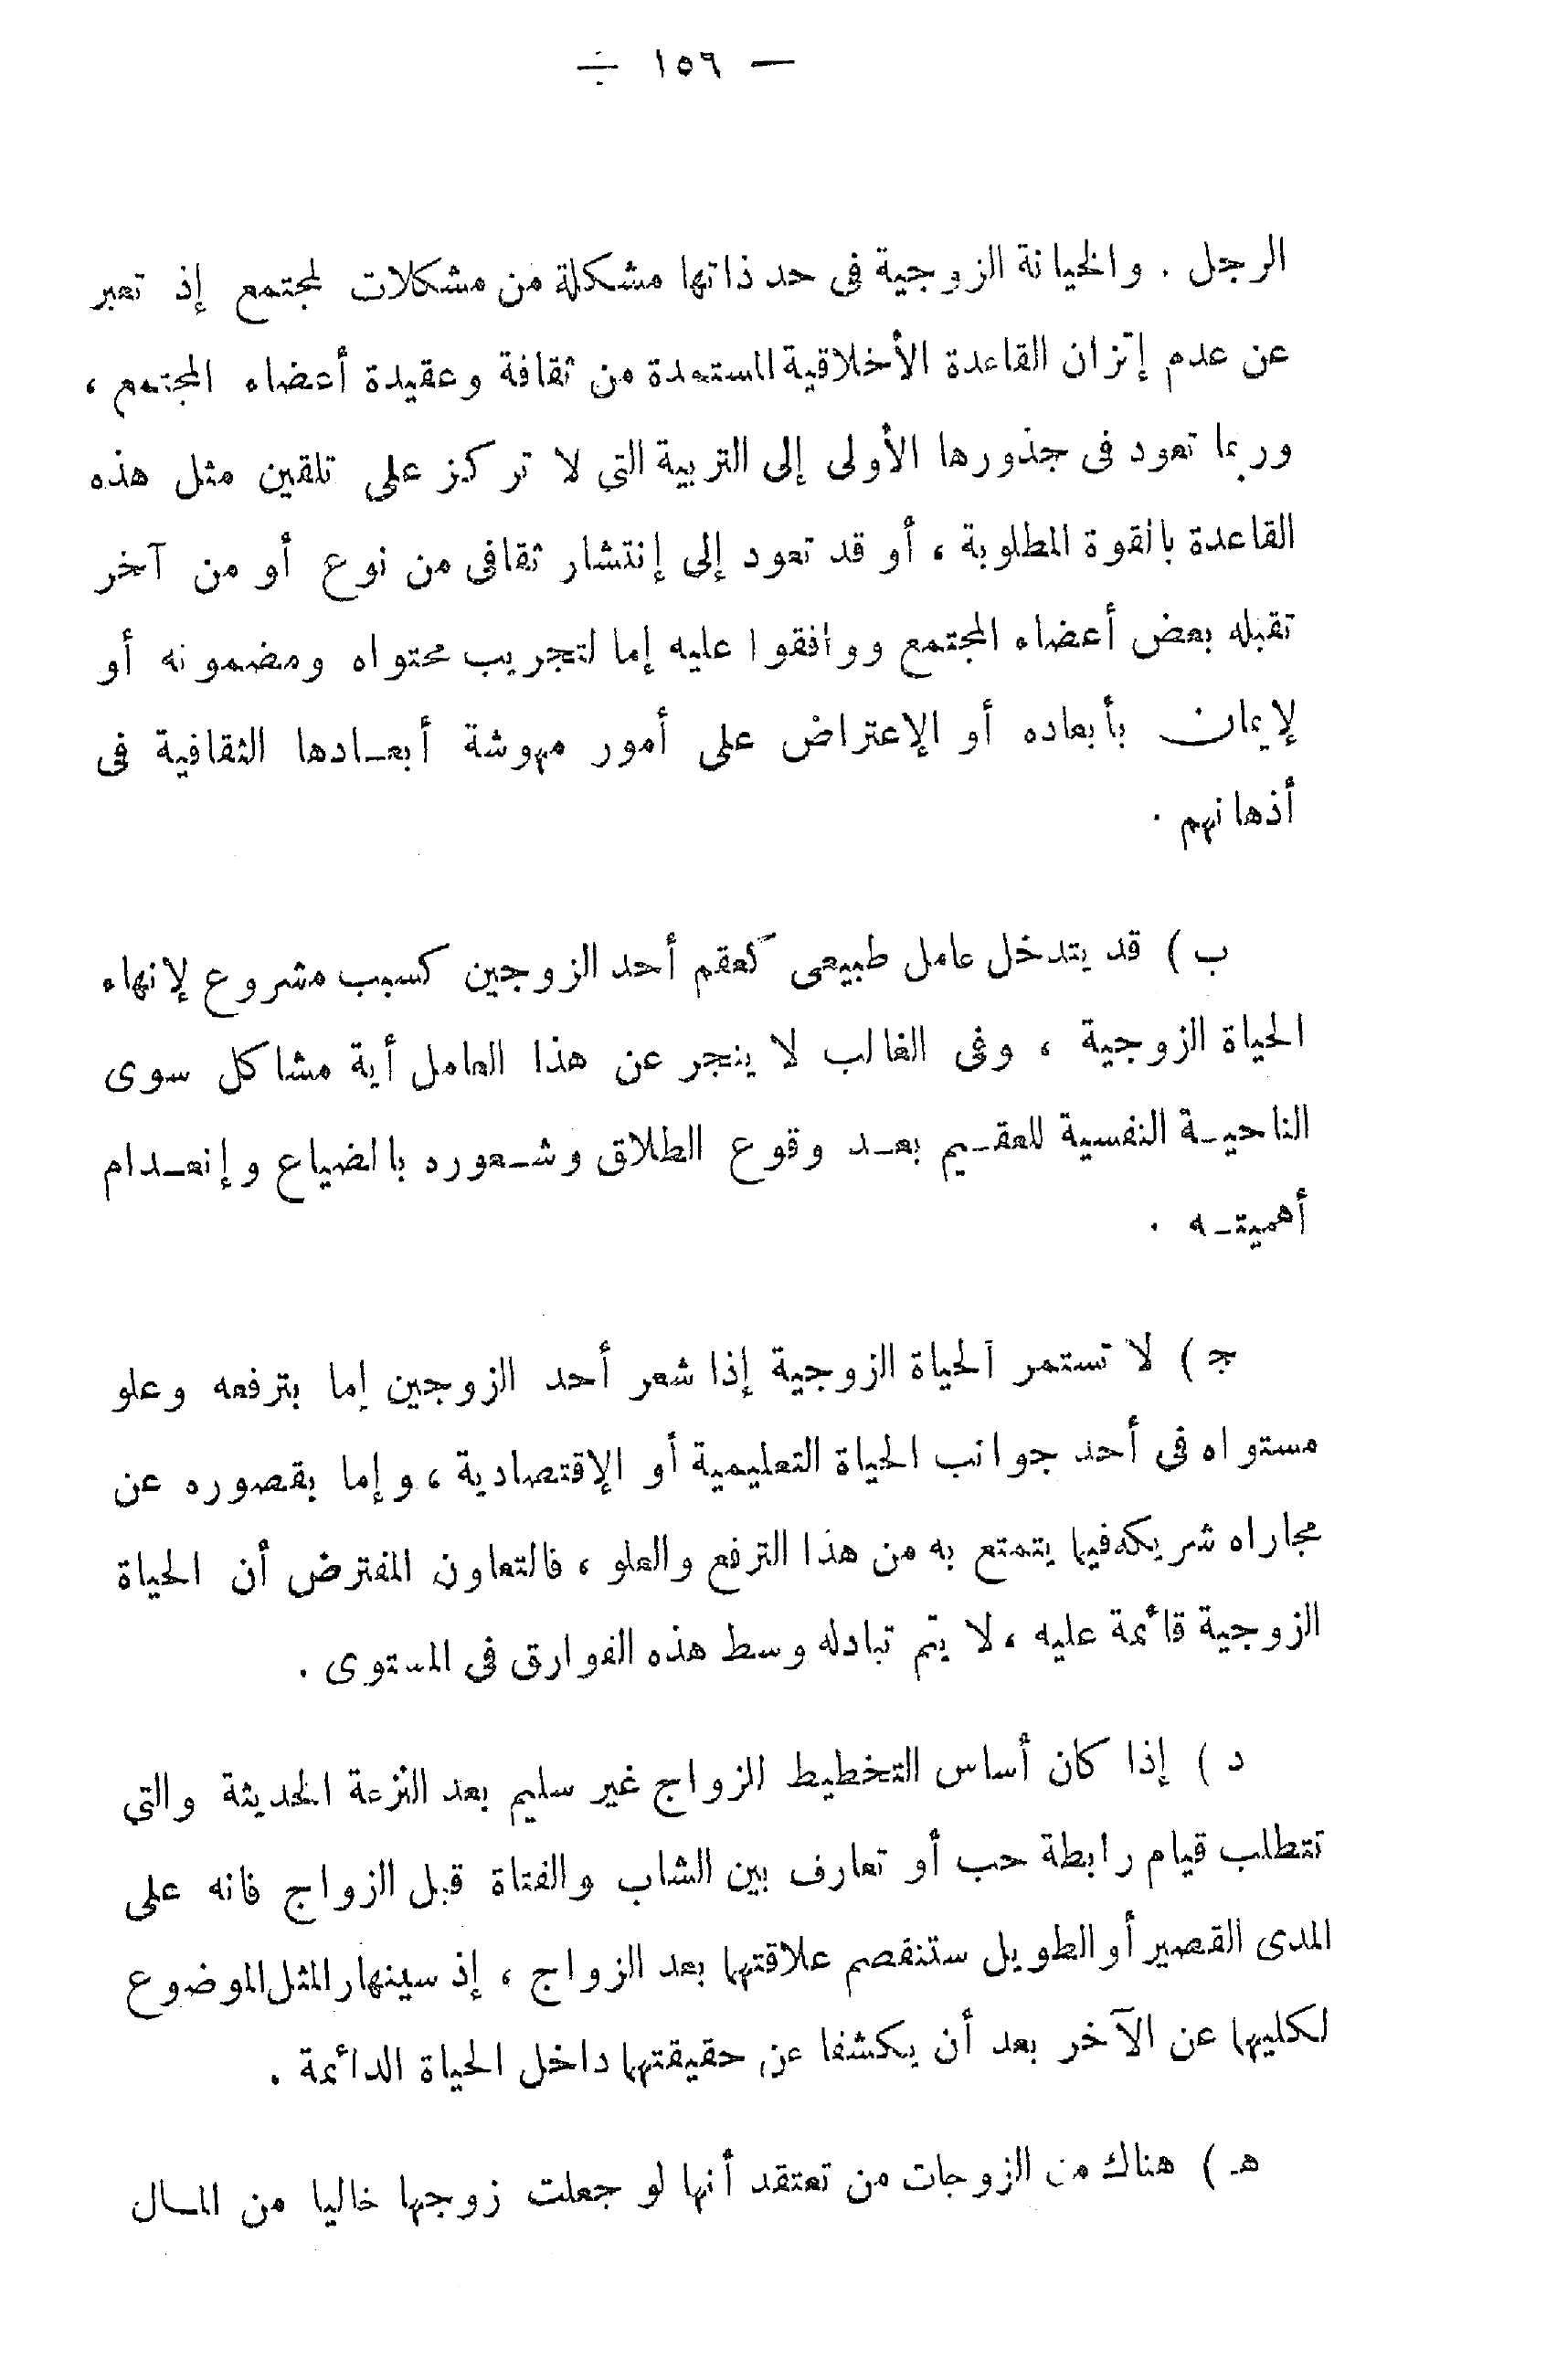 — ١٥٦ —
الرجل . والخيانة الزوجية فى حد ذاتها مشكلة من مشكلات لمجتمع إذ تعبر
عن عدم إتزان القاعدة الأخلاقية المستمدة من ثقافة وعقيدة أعضاء المجتمع ،
وربما تعود فى جذورها الأولى إلى التربية التى لا تركز على تلقين مثل هذه
القاعدة بالقوة المطلوبة ، أو قد تعود إلى إنتشار ثقافى من نوع أو من آخر
تقبله بعض أعضاء المجتمع ووافقوا عليه إما لتجريب محتواه ومضمونه أو
لإيمان بأبعاده أو الإعتراض على أمور مهوشة أبعـادها الثقافية فى
أذهانهم .
ب ) قد يتدخل عامل طبيعى كعقم أحد الزوجين كسبب مشروع لإنهاء
الحياة الزوجية ، وفى الغالب لا ينجر عن هذا العامل أية مشاكل سوى
الناحيـة النفسية للعقـيم بعـد وقوع الطلاق وشـعوره بالضياع وإنعـدام
أهميتـه .
جـ ) لا تستمر الحياة الزوجية إذا شعر أحد الزوجين إما بترفعه وعلو
مستواه فى أحد جوانب الحياة التعليمية أو الإقتصادية ، وإما بقصوره عن
مجاراه شريكه فيما يتمتع به من هذا الترفع والعلو ، فالتعاون المفترض أن الحياة
الزوجية قائمة عليه ، لا يتم تبادله وسط هذه الفوارق فى المستوى .
د ) إذا كان أساس التخطيط للزواج غير سليم بعد النزعة الحديثة والتى
تتطلب قيام رابطة حب أو تعارف بين الشاب والفتاة قبل الزواج فانه على
المدى القصير أو الطويل ستنفصم علاقتهما بعد الزواج ، إذ سينهار المثل الموضوع
لكليهما عن الآخر بعد أن يكشفا عن حقيقتهما داخل الحياة الدائمة .
هـ ) هناك من الزوجات من تعتقد أنها لو جعلت زوجها خاليا من المـال